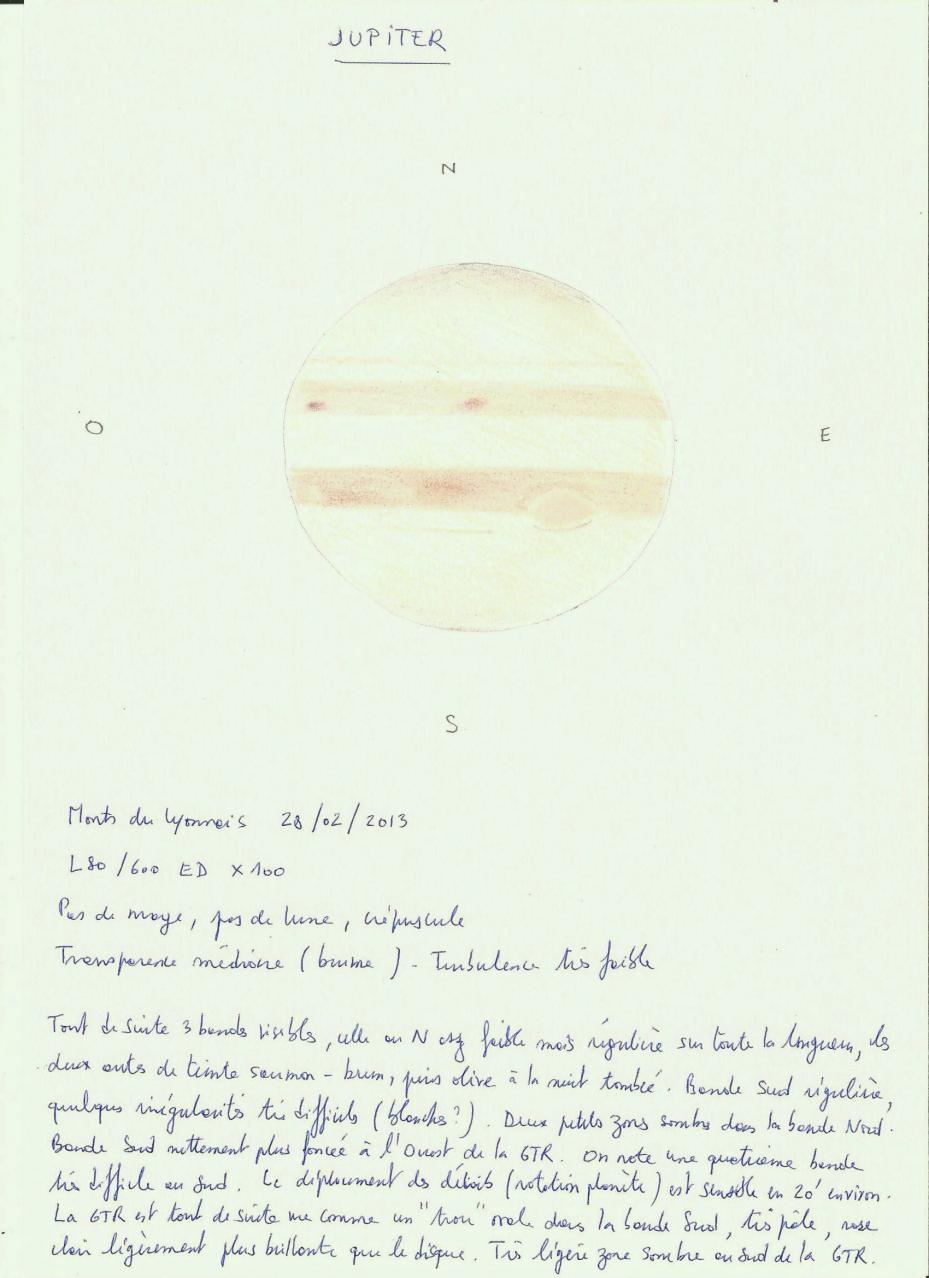 JUPITER
N
O
E
S
Monts du Lyonnais 28/02/2013
L80/600 ED x100
Pas de nuage, pas de lune, crépuscule
Transparence médiocre (brume) - Turbulence très faible
Tout de suite 3 bandes visibles, celle au N assez faible mais régulière sur toute la longueur, les
deux autres de teinte saumon - brun, puis olive à la nuit tombée. Bande Sud régulière,
quelques irrégularités très difficiles (blanches?). Deux petites zones sombres dans la bande Nord.
Bande Sud nettement plus foncée à l'Ouest de la GTR. On note une quatrième bande
très difficile au Sud. Le déplacement des détails (rotation planète) est sensible en 20' environ.
La GTR est tout de suite vue comme un "trou" ovale dans la bande Sud, très pâle, rose
clair légèrement plus brillante que le disque. Très légère zone sombre au Sud de la GTR.